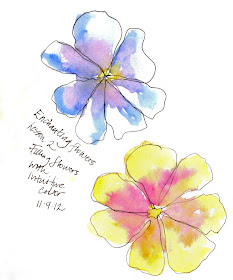 Enchanting flowers
lesson 2
Filling flowers
with
intuitive
color
11.9.12